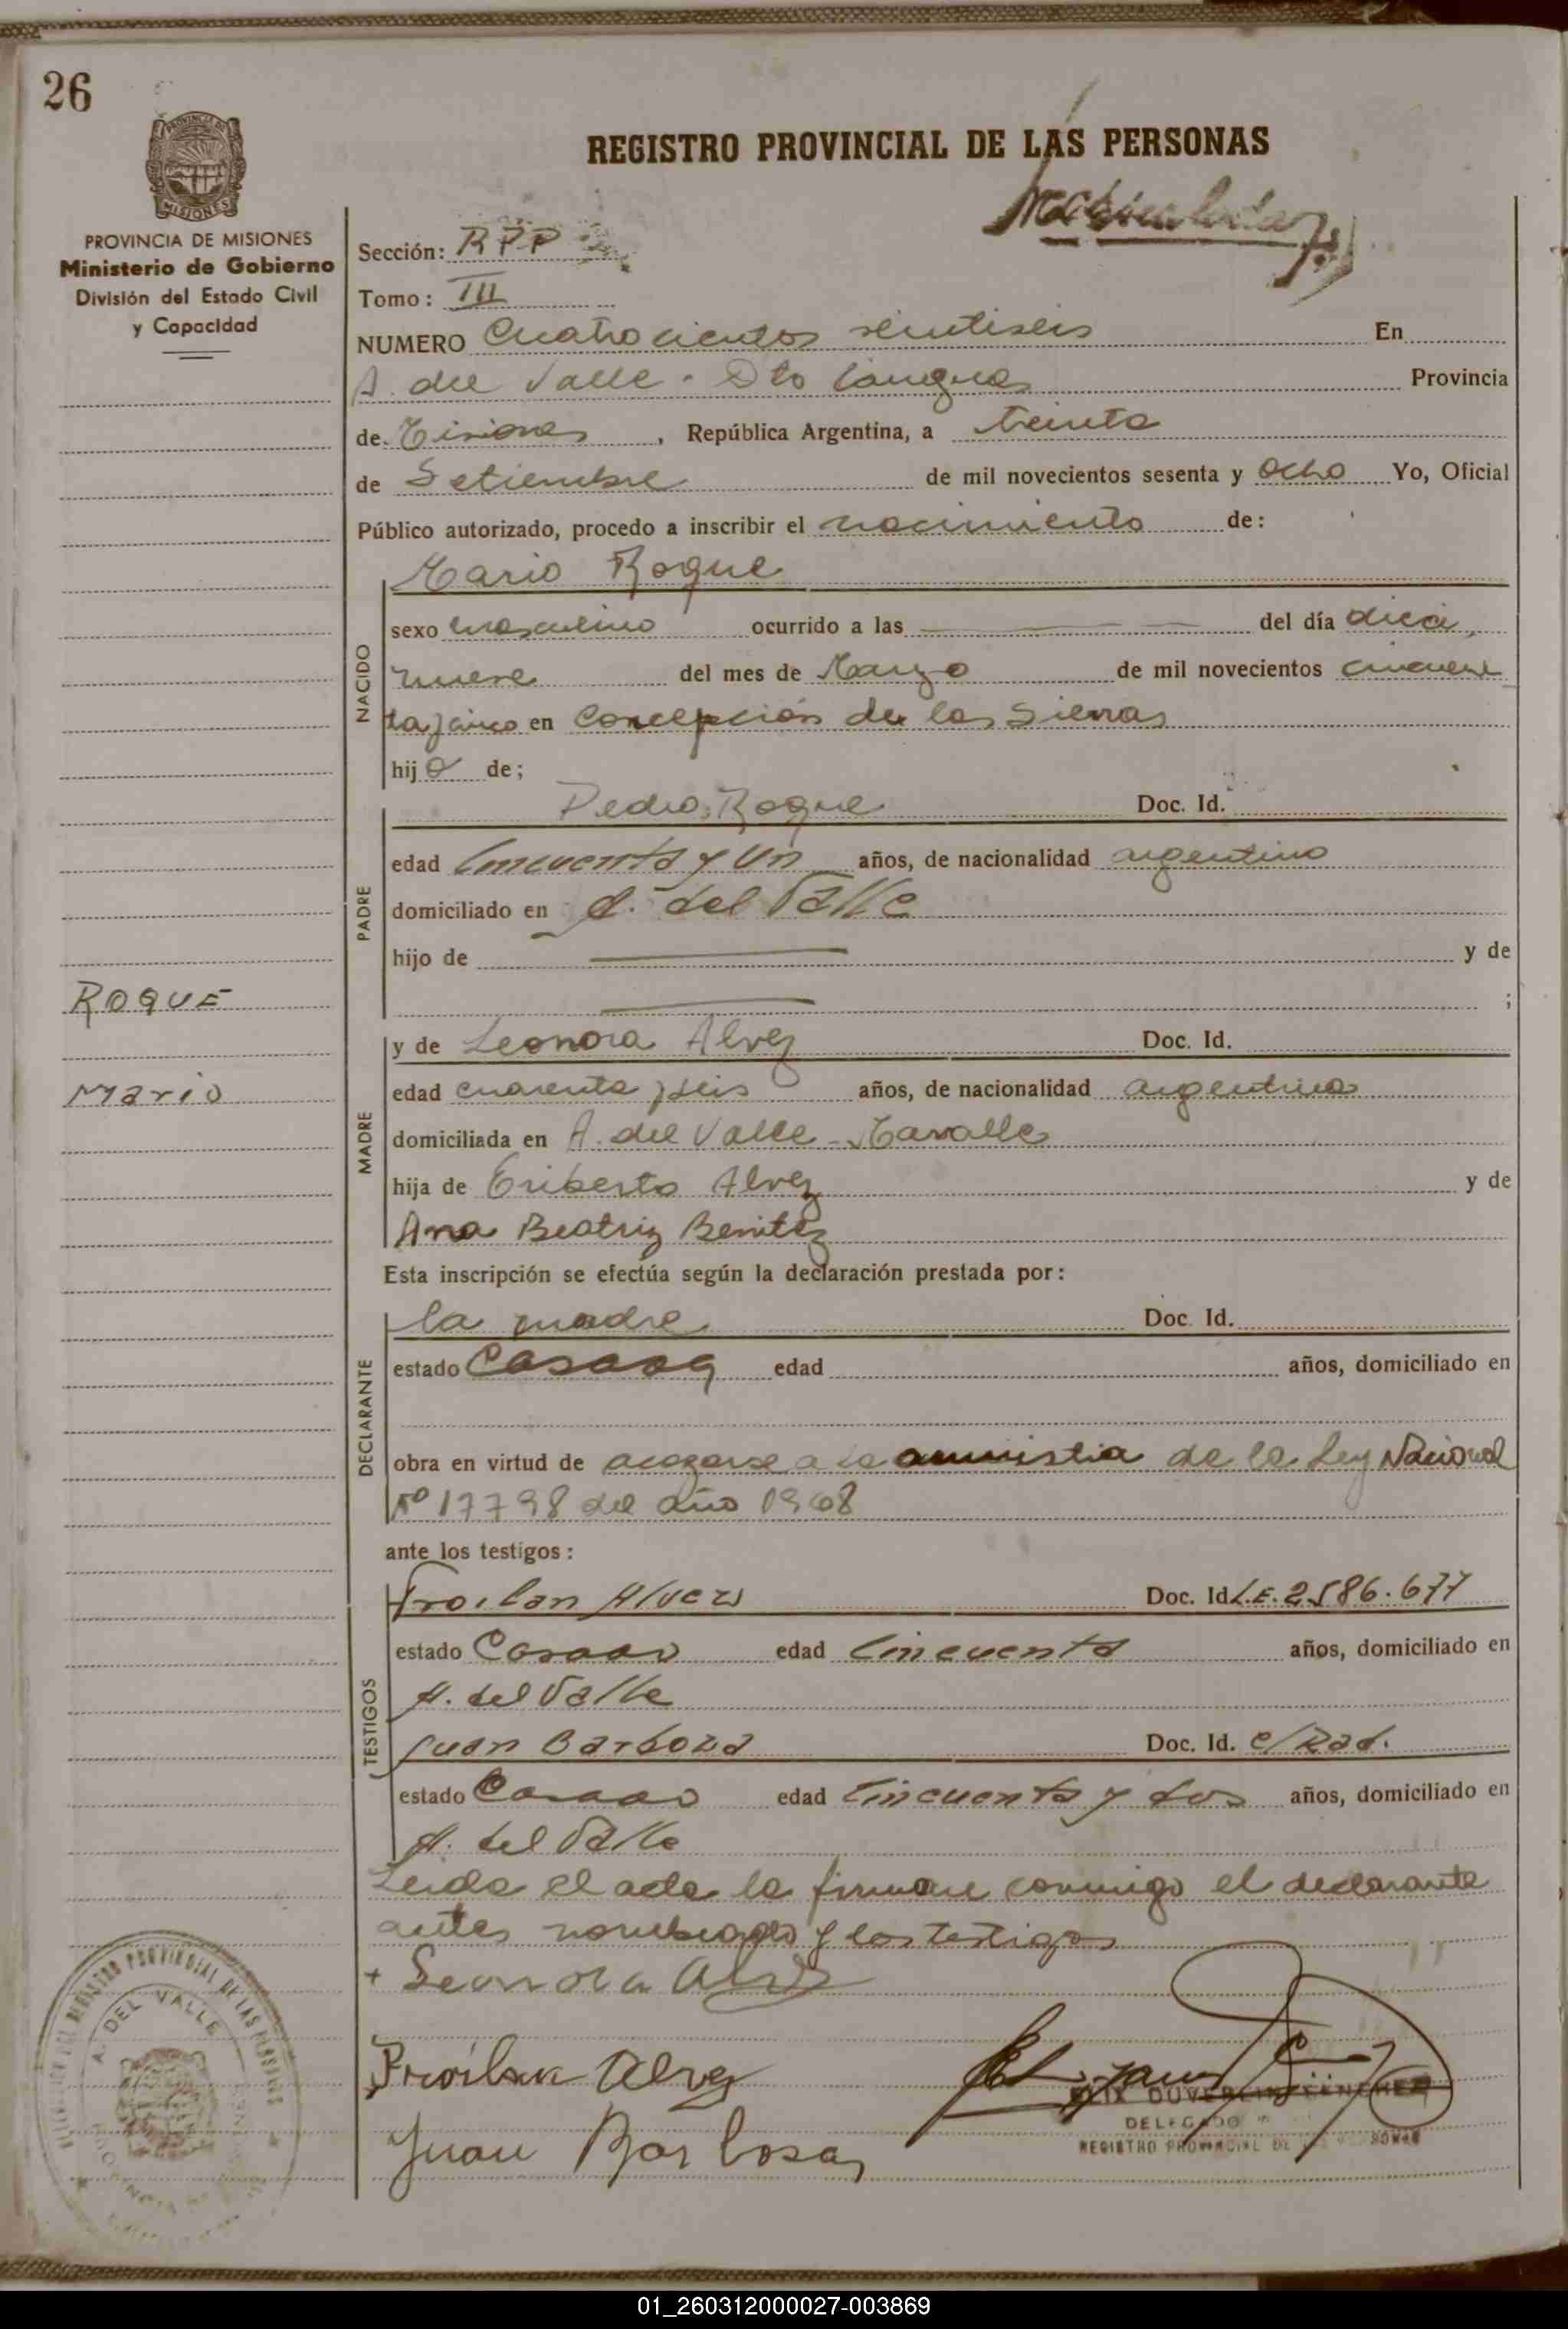 26
REGISTRO PROVINCIAL DE LAS PERSONAS
PROVINCIA DE MISIONES
Ministerio de Gobierno
División del Estado Civil
y Capacidad
Sección: RPP
Tomo: III
NUMERO Cuatrocientos veintiseis En
A. del Valle - Dto Cainguas Provincia
de Misiones, República Argentina, a treinta
de Setiembre de mil novecientos sesenta y ocho Yo, Oficial
Público autorizado, procedo a inscribir el nacimiento de:
NACIDO
Mario Roque
sexo masculino ocurrido a las del día dieci
nueve del mes de Marzo de mil novecientos cincuen
ta y cinco en Concepción de las Sierras
hijo de;
PADRE
Pedro Roque Doc. Id.
edad Cincuenta y Un años, de nacionalidad argentino
domiciliado en A. del Valle
hijo de y de
;
ROQUE
Mario
MADRE
y de Leonora Alvez Doc. Id.
edad cuarenta y seis años, de nacionalidad argentina
domiciliada en A. del Valle
hija de Eriberto Alvez y de
Ana Beatriz Benitez
Esta inscripción se efectúa según la declaración prestada por:
DECLARANTE
la madre Doc. Id.
estado Casada edad años, domiciliado en
obra en virtud de acogerse a la amnistia de la Ley Nacional
Nº 17798 del año 1968
ante los testigos:
TESTIGOS
Froilan Alvez Doc. Id. L.E. 2586.677
estado Casado edad Cincuenta años, domiciliado en
A. del Valle
Juan Barboza Doc. Id. C/Rad.
estado Casado edad Cincuenta y dos años, domiciliado en
A. del Valle
Leida el acta la firman conmigo el declarante
antes nombrado y los testigos
+ Leonora Alvez
Froilan Alvez
Juan Barbosa
FELIX DUVERLIN SANCHEZ
DELEGADO
REGISTRO PROVINCIAL DE LAS PERSONAS
REGISTRO PROVINCIAL DE LAS PERSONAS
A. DEL VALLE
01_260312000027-003869